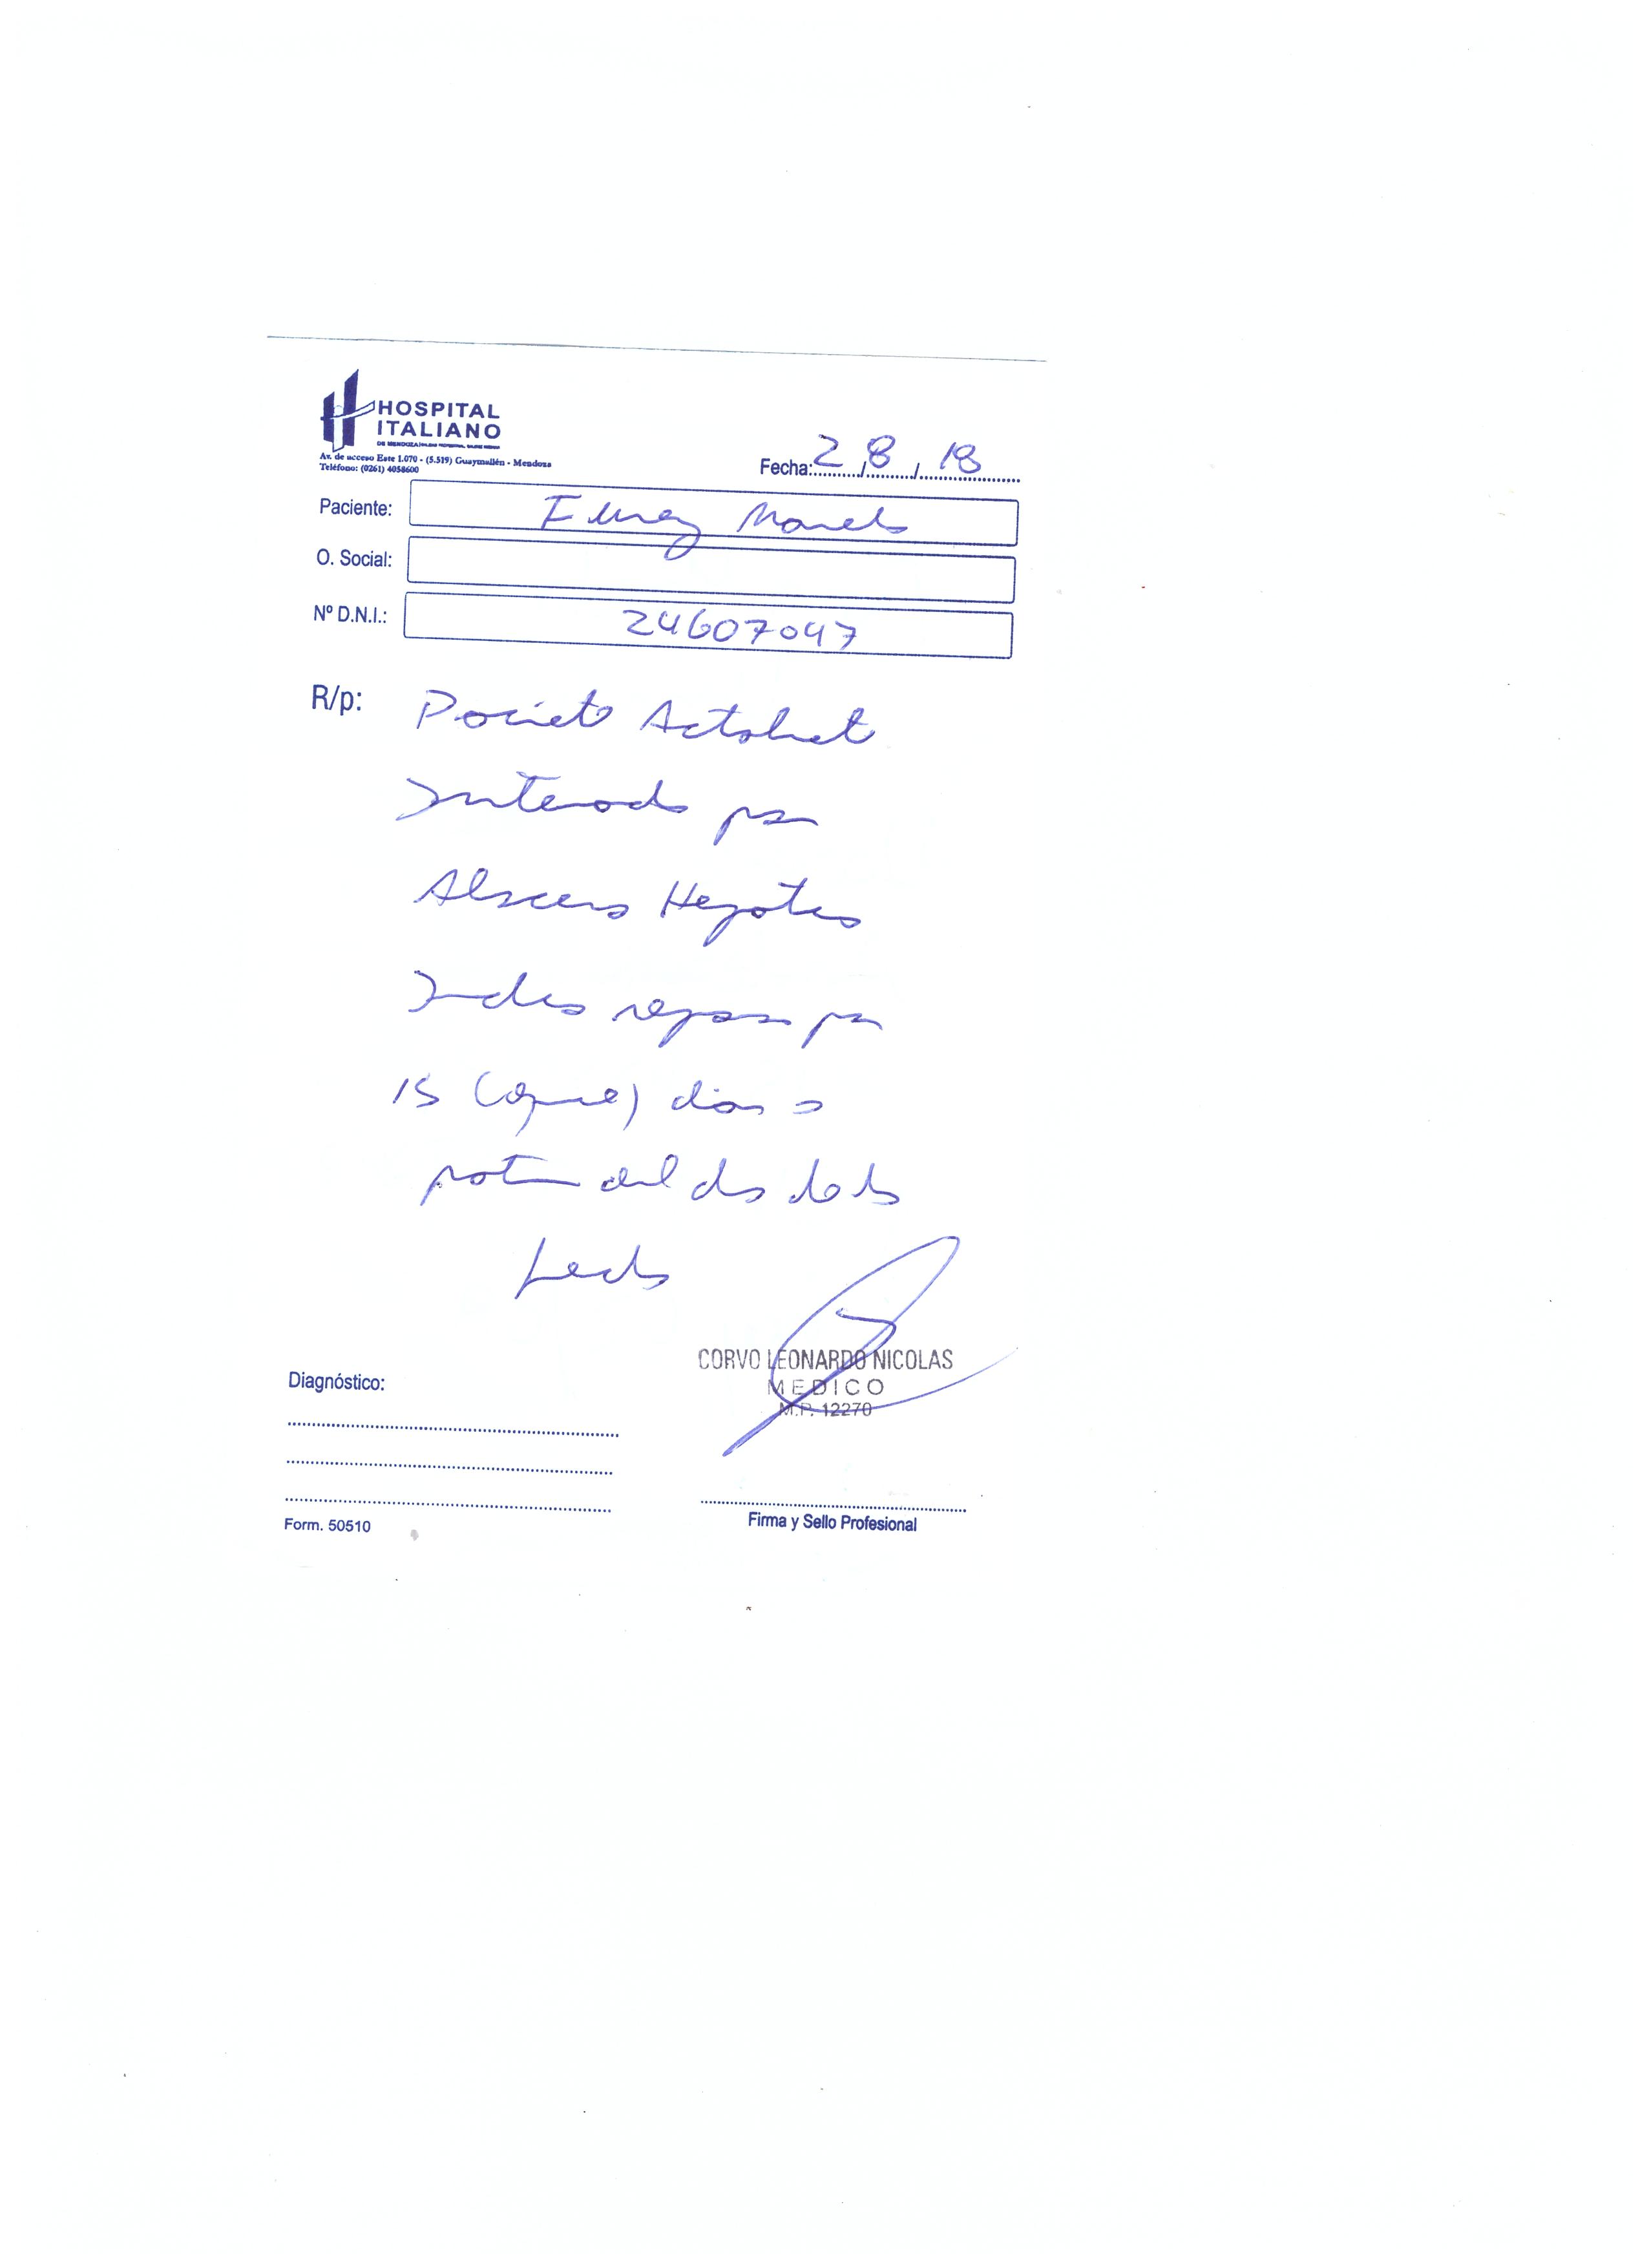 HOSPITAL
ITALIANO
Av. de acceso Este 1.070 - (5.519) Guaymallén - Mendoza
Teléfono: (0261) 4058600
Fecha: 2/8/18
Paciente:
O. Social:
Nº D.N.I.: 24607047
R/p: Paciente Actualmente
Internado por
Absceso Hepático
Indico reposo por
15 (quince) días a
partir del día de la
fecha
CORVO LEONARDO NICOLAS
MEDICO
M.P. 12270
Diagnóstico:
Firma y Sello Profesional
Form. 50510